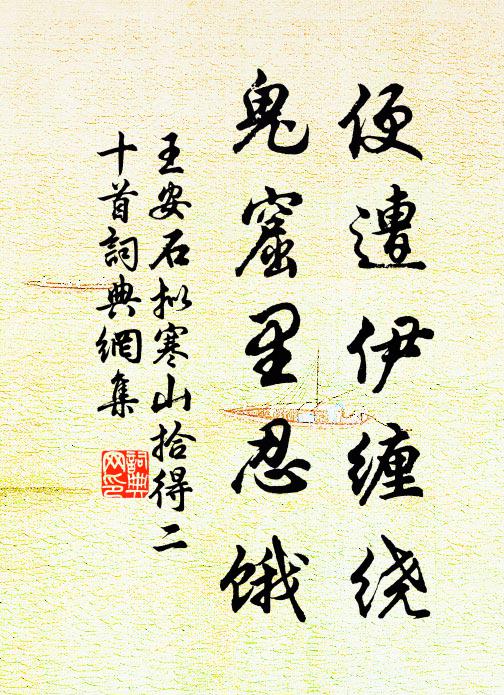 便遭伊缠绕
鬼窟里忍饿
王安石拟寒山拾得二
十首詞典網集
詞典
网印